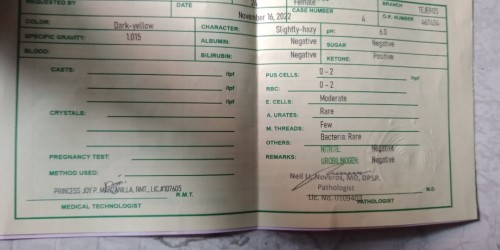 REQUESTED BY
DATE
Female
BRANCH
November 16, 2022
CASE NUMBER
TEJEROS
COLOR:
Dark-yellow
CHARACTER:
4
O.R. NUMBER
Slightly-hazy
pH:
6.0
SPECIFIC GRAVITY:
1.015
ALBUMIN:
Negative
SUGAR
Negative
BLOOD:
BILIRUBIN:
Negative
KETONE:
Positive
CASTS:
/lpf
PUS CELLS:
0 - 2
/hpf
/lpf
RBC:
0 - 2
/hpf
/lpf
E. CELLS:
Moderate
CRYSTALS:
A. URATES:
Rare
M. THREADS:
Few
OTHERS:
Bacteria: Rare
NITRITE:
Negative
PREGNANCY TEST:
REMARKS:
UROBILINOGEN:
Negative
METHOD USED:
Neil U. Noveros, MD, DPSP.
PRINCESS JOY P. MANZANILLA, RMT., LIC.#107605
R.M.T.
Pathologist
M.D.
MEDICAL TECHNOLOGIST
Lic. No. 0109403
PATHOLOGIST